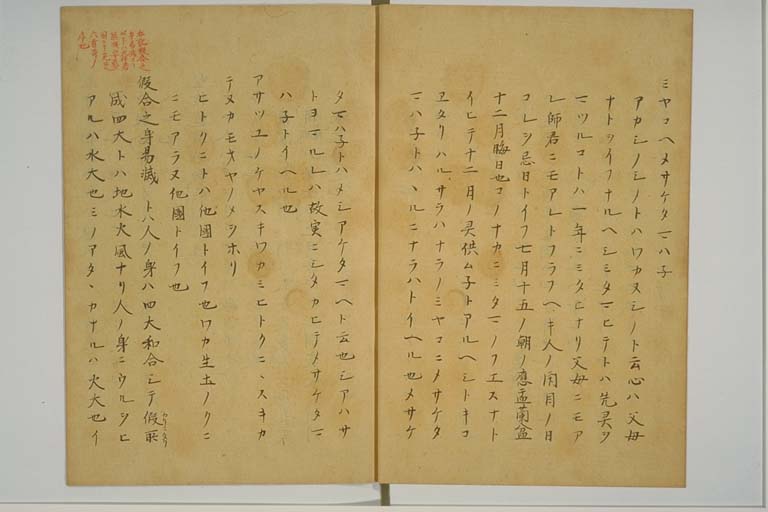 ミヤコヘメサケタマハ子
アカシノシノトハワカヌシノト云心ハ父母
ナトヲイフナルヘシミタマヒテトハ先灵ヲ
マツルコトハ一年ニミタヒナリ父母ニモア
レ師君ニモアレトフラフヘキ人ノ閇目ノ日
コレヲ忌日トイフ七月十五ノ朝ノ應盂蘭盆
十二月晦日也コノナカニミタマノフエスナト
イヒテ十二月ノ灵供ム子トアルヘシトキコ
ヱタリハルサラハナラノミヤコニメサケタ
マハ子トハヽルニナラハトイヘル也メサケ
タマハ子トハメシアケタマヘト云也シアハサ
トヨマルレハ故実ニシタカヒテメサケタマ
ハ子トイヘル也
アサツユノケヤスキワカミヒトクニヽスキカ
テヌカモオヤノメヲホリ
ヒトクニトハ他國トイフ也ワカ生土ノクニ
ニモアラヌ他國トイフ也
假合之身易滅 トハ人ノ身ハ四大和合シテ假所
成四大トハ地水火風ナリ人ノ身ニウルヲヒ
アルハ水大也ミノアタヽカナルハ火大也イ